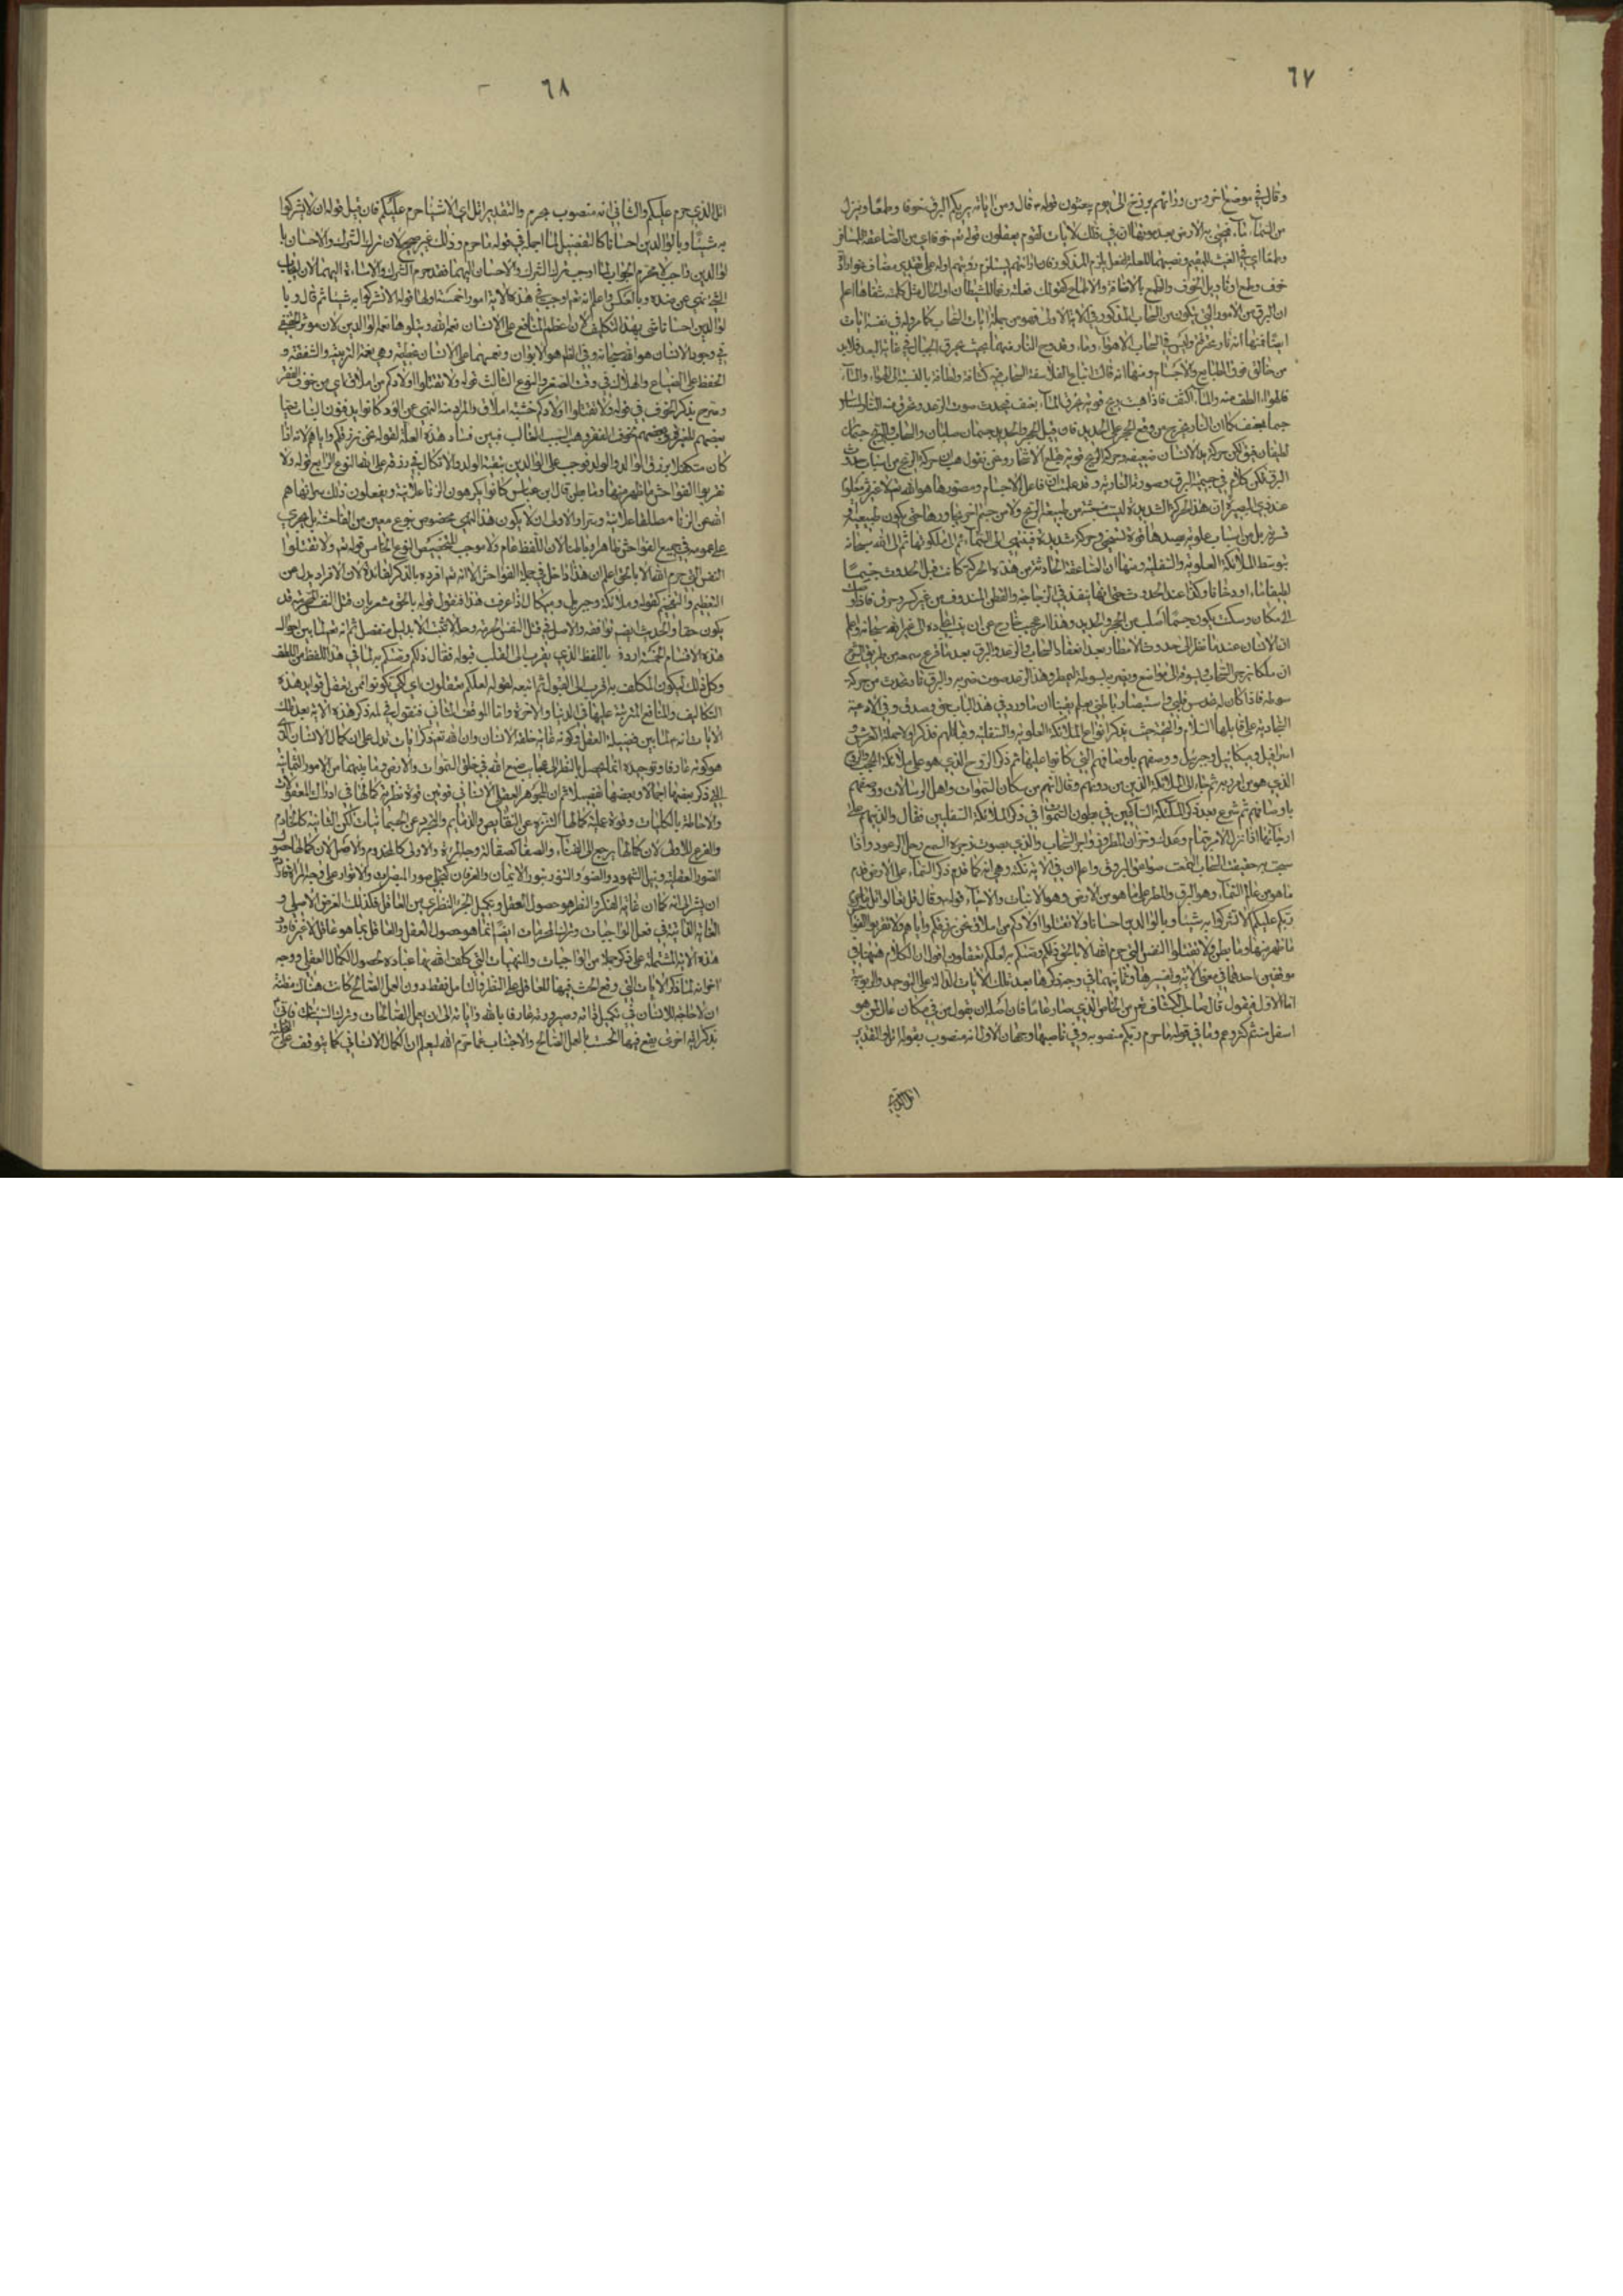 ٦٧
وقال في موضع اخر ومن ورائهم برزخ الى يوم يبعثون قوله تعالى ومن اياته يريكم البرق خوفا وطمعا وينزل
من السماء ماء فيحيي به الارض بعد موتها ان في ذلك لايات لقوم يعقلون قوله تعالى خوفا اي من الصاعقة للمسافر
وطمعا اي في الغيث للمقيم ونصبهما للعلة لفعل يلزم المذكور فان اراءتهم يستلزم رؤيتهم او له على تقدير مضاف نحو ارادة
خوف وطمع او تاويل الخوف والطمع بالاخافة والاطماع كقولك فعلته رغما للشيطان او الحال مثل كلمته شفاها اعلم
ان البرق من الامور التي يكون من السحاب المذكور في الاية الاولى فهو من جملة ايات السحاب كما مر وله في نفسه ايات
ايضا فمنها انه نار تخرج وليس في السحاب الا هواء وماء وخروج النار منهما بحيث يحرق الجبال في غاية البعد فلابد
من خالق فوق الطبايع والاجسام ومنها انه قالت اتباع الفلاسفة السحاب فيه كثافة ولطافة بالنسبة الى الهواء والماء
فالهواء الطف منه والماء اكثف فاذا هبت ريح قوية تخرق السحاب بعنف فيحدث صوت الرعد وتخرق منه النار لمساس
جسم بعنف كما ان النار تخرج من وقع الحجر على الحديد فان قيل الحجر والحديد جسمان صلبان والسحاب والريح جسمان
لطيفان فيق لكن حركة يد الانسان ضعيفة وحركة الريح قوية تقلع الاشجار ونحن نقول هب ان حركة الريح من اسباب حدوث
البرق لكن كلام في جسمية البرق وصورته النارية وقد علمت ان فاعل الاجسام ومصورها هو الله تعالى لا غير ثم نقول
عند ذي البصيرة ان هذه الحركة الشديدة ليست منبعثة من طبيعة الريح ولا من جسم اخر يجاورها حتى يكون طبيعية او
قسرية بل من اسباب علوية يصدها قوة تقتضي حركة شديدة فينتهي الى السماء ثم الى ملكوتها ثم الى الله سبحانه
بتوسط الملائكة العلوية والسفلية ومنها ان الصاعقة الحادثة من هذه الحركة كانت قبل الحدوث جسما
لطيفا ناريا او دخانا وكذا عند الحدوث حتى انها ينفذ في الزجاجة والقطن المندوف من غير كسر وحرق فاذا وصلت
الى مكان وسكنت يكون جسما اصلب من الحجر والحديد وهذا امر عجيب خارج عن ان ينسب ايجاده الى غير الله سبحانه واعلم
ان الانسان عندما نظر الى حدوث الامطار بعد انعقاد السحاب والرعد والبرق بعد ما قرع سمعه من طريق الشرع
ان ملكا يزجر السحاب ليسوقه الى مواضع ويضربه بسوطه للمطر وهذا الرعد صوت ضربه والبرق نار يحدث من حركة
سوطه فاذا كان له حدس قلبي واستبصار باطني يعلم يقينا ان ما ورد في هذا الباب حق وصدق وفي الادعية
السجادية على قايلها السلام والتحية حيث يذكر انواع الملائكة العلوية والسفلية وقبائلهم فذكر اولا حملة العرش و
اسرافيل وميكائيل وجبرئيل ووصفهم باوصافهم التي كانوا عليها ثم ذكر الروح الذي هو على ملائكة الحجب والروح
الذي هو من امر ربه ثم ثنى الى الملائكة الذين من دونهم وقال انهم من سكان السموات واهل الرسالات ووصفهم
باوصافهم ثم شرع بعد ذكر الملائكة الساكنين في بطون السموات في ذكر الملائكة السفليين فقال والذينهم على
ارجائها اذا نزل الامر بتمام وعدك وخزان المطر وزواجر السحاب والذي بصوت زجره يسمع زجل الرعود واذا
سبحت به حفيفة السحاب التمعت صواعق البروق واعلم ان في الاية نكتة وهي انه كما قدم ذكر السماء على الارض قدم
ما هو من عالم السماء وهو البرق والمطر على ما هو من الارض وهو الانبات والاحياء قوله وقال قل تعالوا اتل ما حرم
ربكم عليكم الا تشركوا به شيئا وبالوالدين احسانا ولا تقتلوا اولادكم من املاق نحن نرزقكم واياهم ولا تقربوا الفواحش
ما ظهر منها وما بطن ولا تقتلوا النفس التي حرم الله الا بالحق ذلكم وصيكم به لعلكم تعقلون اقول ان الكلام فيهما في
موقفين احدهما في معنى الاية وتفسيرها وثانيهما في وجه ذكرها بعد تلك الايات الدالة على التوحيد والربوبية
اما الاول فيقول قال صاحب الكشاف هو من الخاص الذي صار عاما فان اصله ان يقوله من في مكان عال لمن هو
اسفل منه ثم كثر وعم وما في قوله ما حرم ربكم منصوبة وفي ناصبها وجهان الاول انه منصوب بقوله اتل والتقدير
اتل الذي
٦٨
اتل الذي حرم عليكم والثاني انه منصوب بحرم والتقدير اتل اي الاشياء حرم عليكم فان قيل قوله ان لا تشركوا
به شيئا وبالوالدين احسانا كالتفصيل لما اجمله في قوله ما حرم وذلك غير صحيح لان ترك الشرك والاحسان با
لوالدين واجب لا محرم الجواب لما اوجب ترك الشرك والاحسان اليهما فقد حرم الشرك والاساءة اليهما لان ايجاب
الشيء نهي عن ضده وبالعكس واعلم انه تعالى اوجب في هذه الاية امورا خمسة اولها قوله الا تشركوا به شيئا ثم قال وبا
لوالدين احسانا ثنى بهذا التكليف لان اعظم المنافع على الانسان نعم الله ويتلوها نعم الوالدين لان موثر الحقيقي
في وجود الانسان هو الله سبحانه وفي الظاهر هو الابوان ونعمهما على الانسان عظيمة وهي نعمة التربية والشفقة و
الحفظ على الضياع والهلاك في وقت الصغر والنوع الثالث قوله ولا تقتلوا اولادكم من املاق اي من خوف الفقر
وصرح بذكر الخوف في قوله ولا تقتلوا اولادكم خشية املاق والمراد منه النهي عن الود كانوا يدفنون البنات
بعضهم للغيرة وبعضهم خوف الفقر وهو السبب الغالب فبين فساد هذه العلة بقوله نحن نرزقكم واياهم لانه اذا
كان متكفلا برزق الوالد والولد فوجب على الوالدين تبقية الولد والاتكال في رزقه على الله النوع الرابع قوله ولا
تقربوا الفواحش ما ظهر منها وما بطن قال ابن عباس كانوا يكرهون الزنا علانية ويفعلون ذلك سرا فنهاهم
الله عن الزنا مطلقا علانية وسرا والاولى ان لا يكون هذا النهي مخصوص بنوع معين من الفاحشة بل يجري
على عمومه في جميع الفواحش ظاهرا وباطنا لان اللفظ عام ولا موجب للتخصيص النوع الخامس قوله تعالى ولا تقتلوا
النفس التي حرم الله الا بالحق واعلم ان هذا داخل في جملة الفواحش الا انه تعالى افرده بالذكر لفائدة لان الافراد يدل عن
التعظيم والتفخيم كقوله وملائكته وجبريل وميكال اذا عرفت هذا فنقول قوله بالحق مشعر بان قتل النفس المحرمة قد
يكون حقا والحديث ايضا يوافقه والاصل في قتل النفس الحرمة وحله لا يثبت الا بدليل منفصل ثم انه تعالى لما بين احوال
هذه الاقسام الخمسة اردفه باللفظ الذي يقرب الى القلب قبوله فقال ذلكم وصيكم به لما في هذا اللفظ من اللطف
وكل ذلك ليكون المكلف به اقرب الى القبول ثم اتبعه بقوله لعلكم تعقلون اي لكي تكونوا ممن يعقل فوايد هذه
التكاليف والمنافع المترتبة عليها في الدنيا والاخرة واما الموقف الثاني فنقول في لمية ذكر هذه الاية بعد تلك
الايات انه تعالى لما بين فضيلة العقل وكونه غاية خلقة الانسان وان الله تعالى ذكر ايات تدل على ان كمال الانسان الذي
هو كونه عارفا وتوحيده انما يحصل بالنظر الى عجايب صنع الله في خلق السموات والارض وما بينهما من الامور الثمانية
التي ذكر بعضها اجمالا وبعضها تفصيلا ثم ان للجوهر العقلي الانساني قوتين قوة نظرية كمالها في ادراك المعقولات
والاحاطة بالكليات وقوة عملية كمالها التنزه عن النقايص والذمايم والتجرد عن الجسمانيات لكن الثانية كالخادم
والفرع للاولى لان كمالها يرجع الى الفناء والصفا كصقالة وجه المرءاة والاولى كالمخدوم والاصل لان كمالها حضور
الصور العقلية ونيل الشهود والضوء والتنور بنور الايمان والعرفان كتجلي صور المبصرات والانوار على وجه المراة فاذا
ان يشير الى انه كما ان غاية الفكر والنظر هو حصول العقل وتكميل الجزء النظري من العاقل فكذلك الغرض الاصلي و
الغاية الثانية في فعل الواجبات وترك المحرمات ايضا انما هو حصول العقل والعاقل بما هو عاقل لا غير فاورد
هذه الاية المشتملة على ذكر جملة من الواجبات والمنهيات التي كلف الله بها عباده لحصول الكمال العقلي ووجه
اخر انه لما ذكر الايات التي وقع الحث فيها للعاقل على النظر والتامل فقط دون العمل الصالح كانت هناك مظنة
ان لا حاجة للانسان في تكميل ذاته وصيرورته عارفا بالله واياته الى ان يعمل الصالحات وترك السيئات فاتى
بذكر اية اخرى يقع فيها الحث بالعمل الصالح والاجتناب عما حرم الله ليعلم ان الكمال الانساني كما يتوقف على